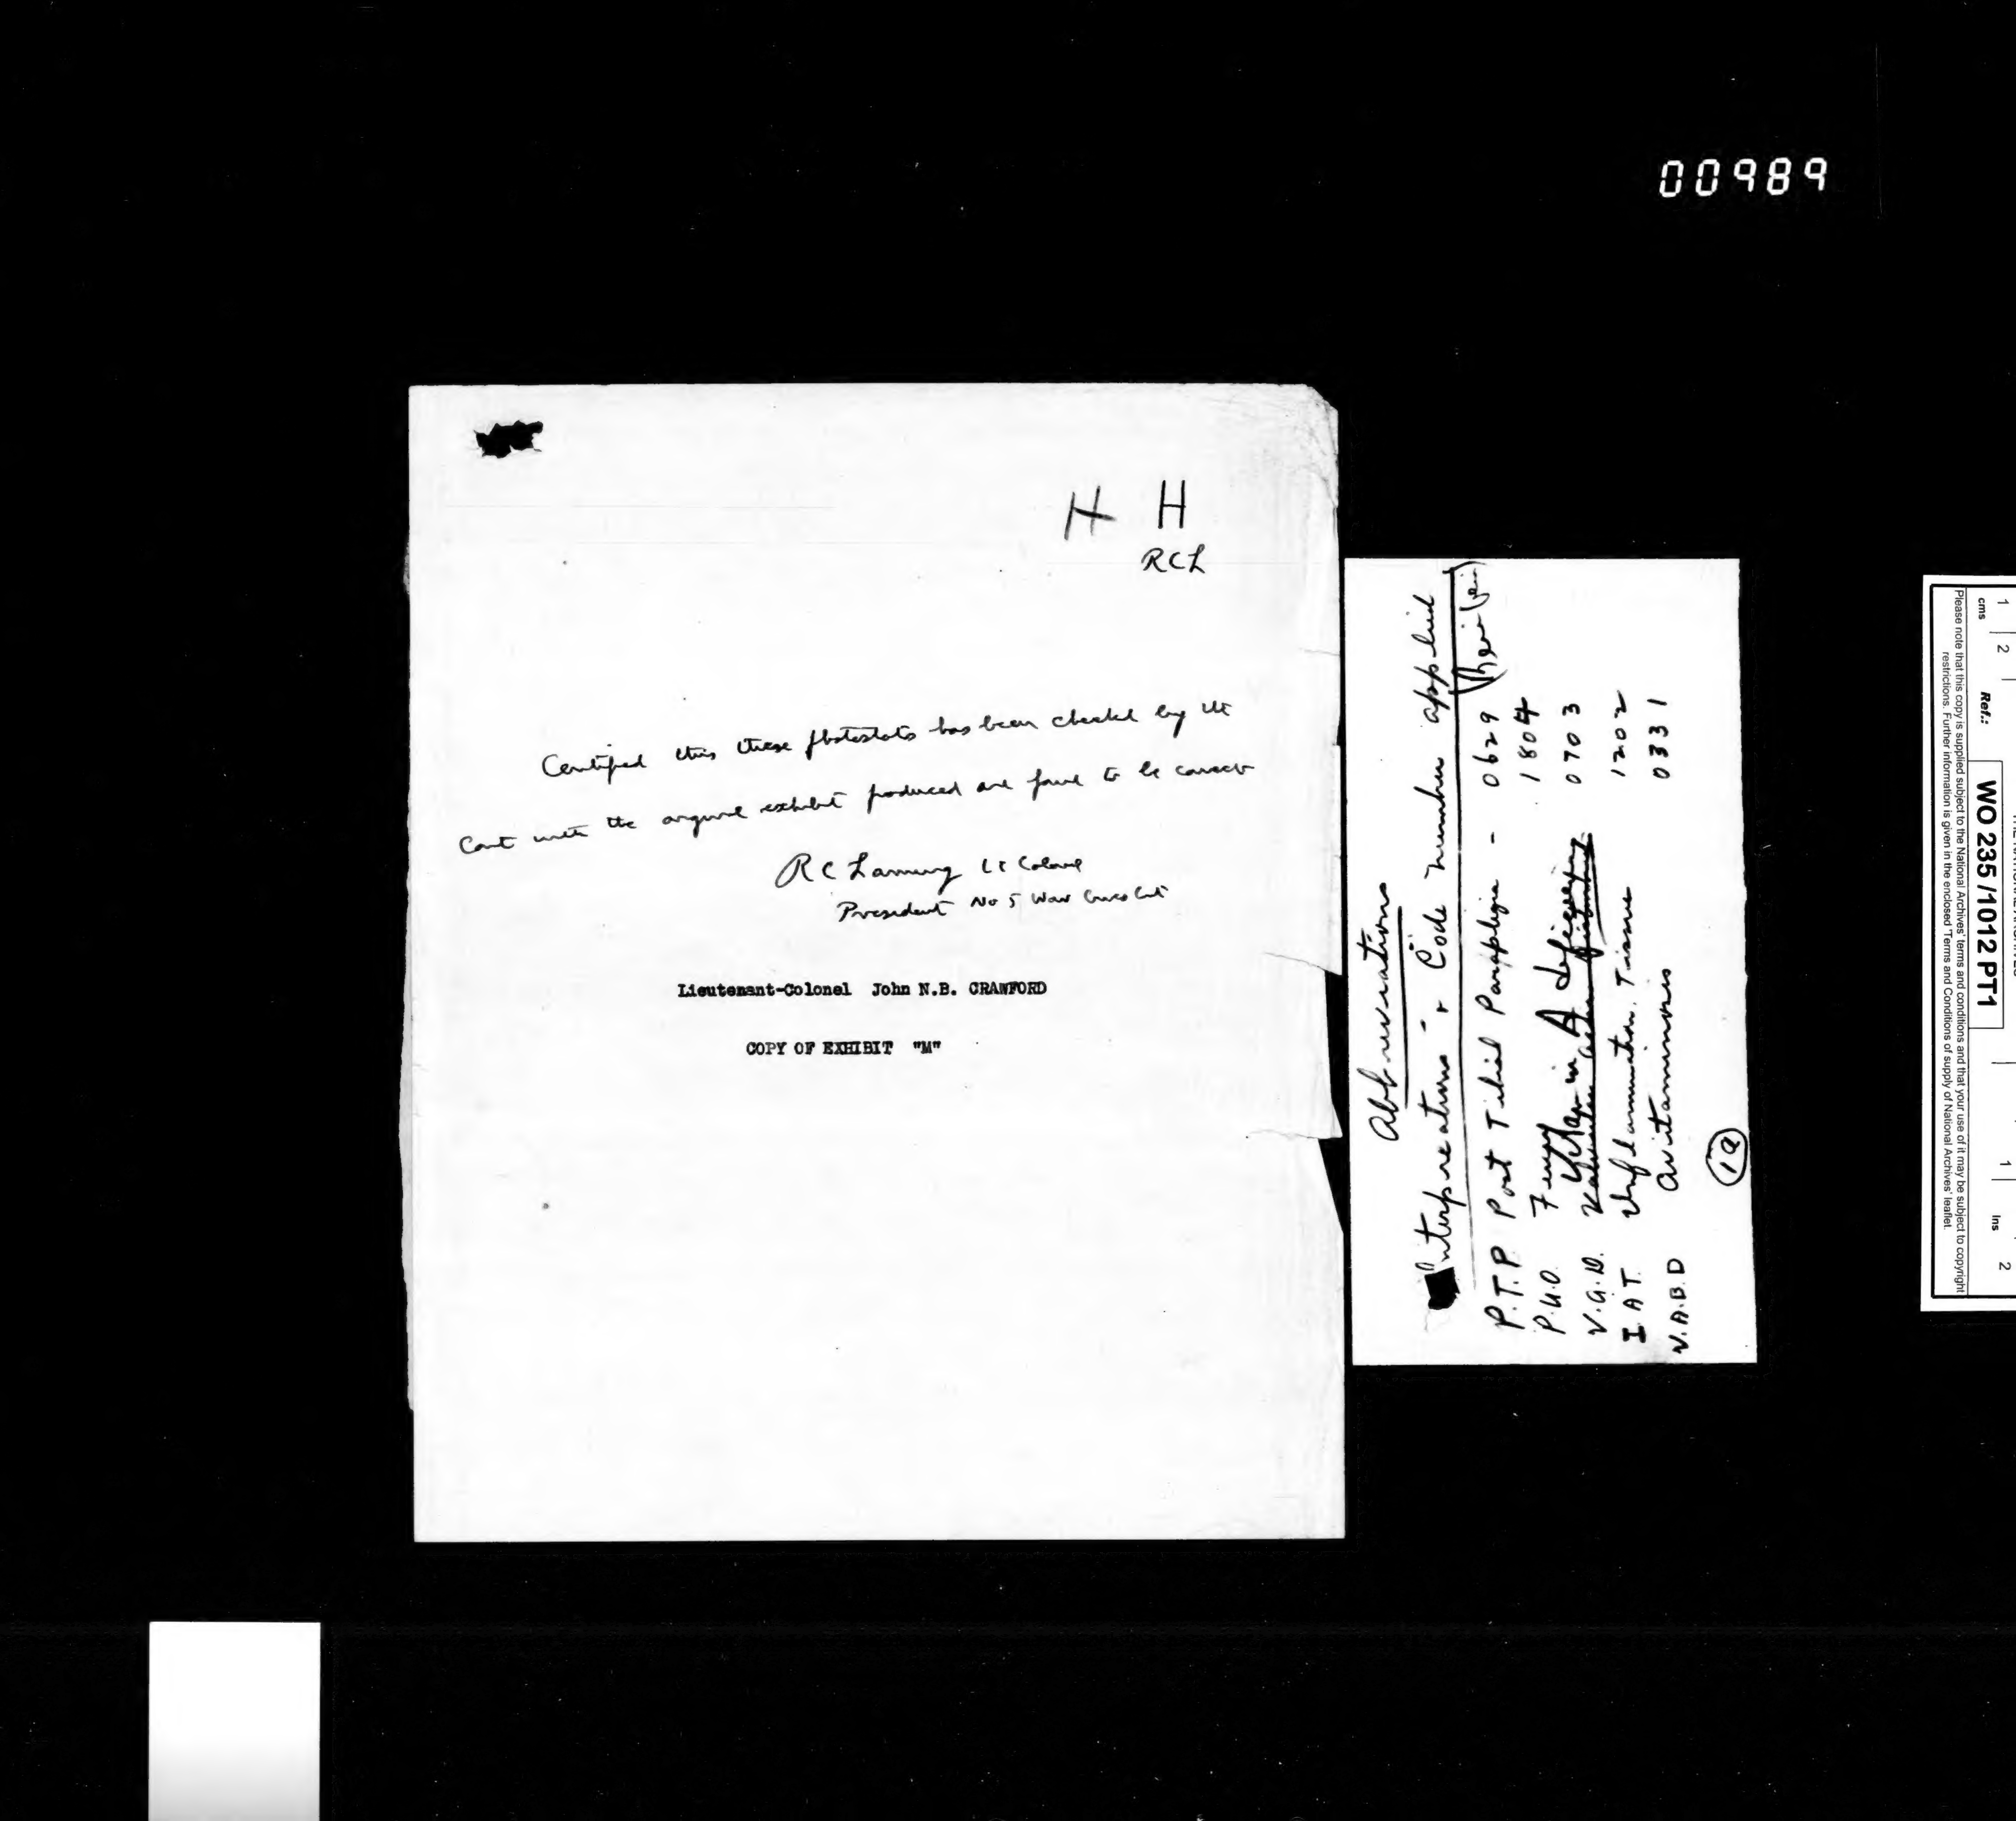 00989
H H
RCL
Certified this these photostats has been checked by the
Court with the original exhibit produced and found to be correct
R C Laming Lt Colonel
President No 5 War Crimes Court
Lieutenant-Colonel John N.B. CRAWFORD
COPY OF EXHIBIT "M"
Abbreviations
Interpreations - & Code number applied
P.T.P. Post Tibial Paraplegia - 0629
P.U.O. 1804
V.A.D. Vitamin A deficiency 0703
I.A.T. Inflammation. Tissue 1202
V.A.B.D Avitaminosis 0331
1a
1 2
cms
Ref.:
WO 235/1012 PT1
1
Ins
2
Please note that this copy is supplied subject to the National Archives' terms and conditions and that your use of it may be subject to copyright
restrictions. Further information is given in the enclosed 'Terms and Conditions of supply of National Archives' leaflet.